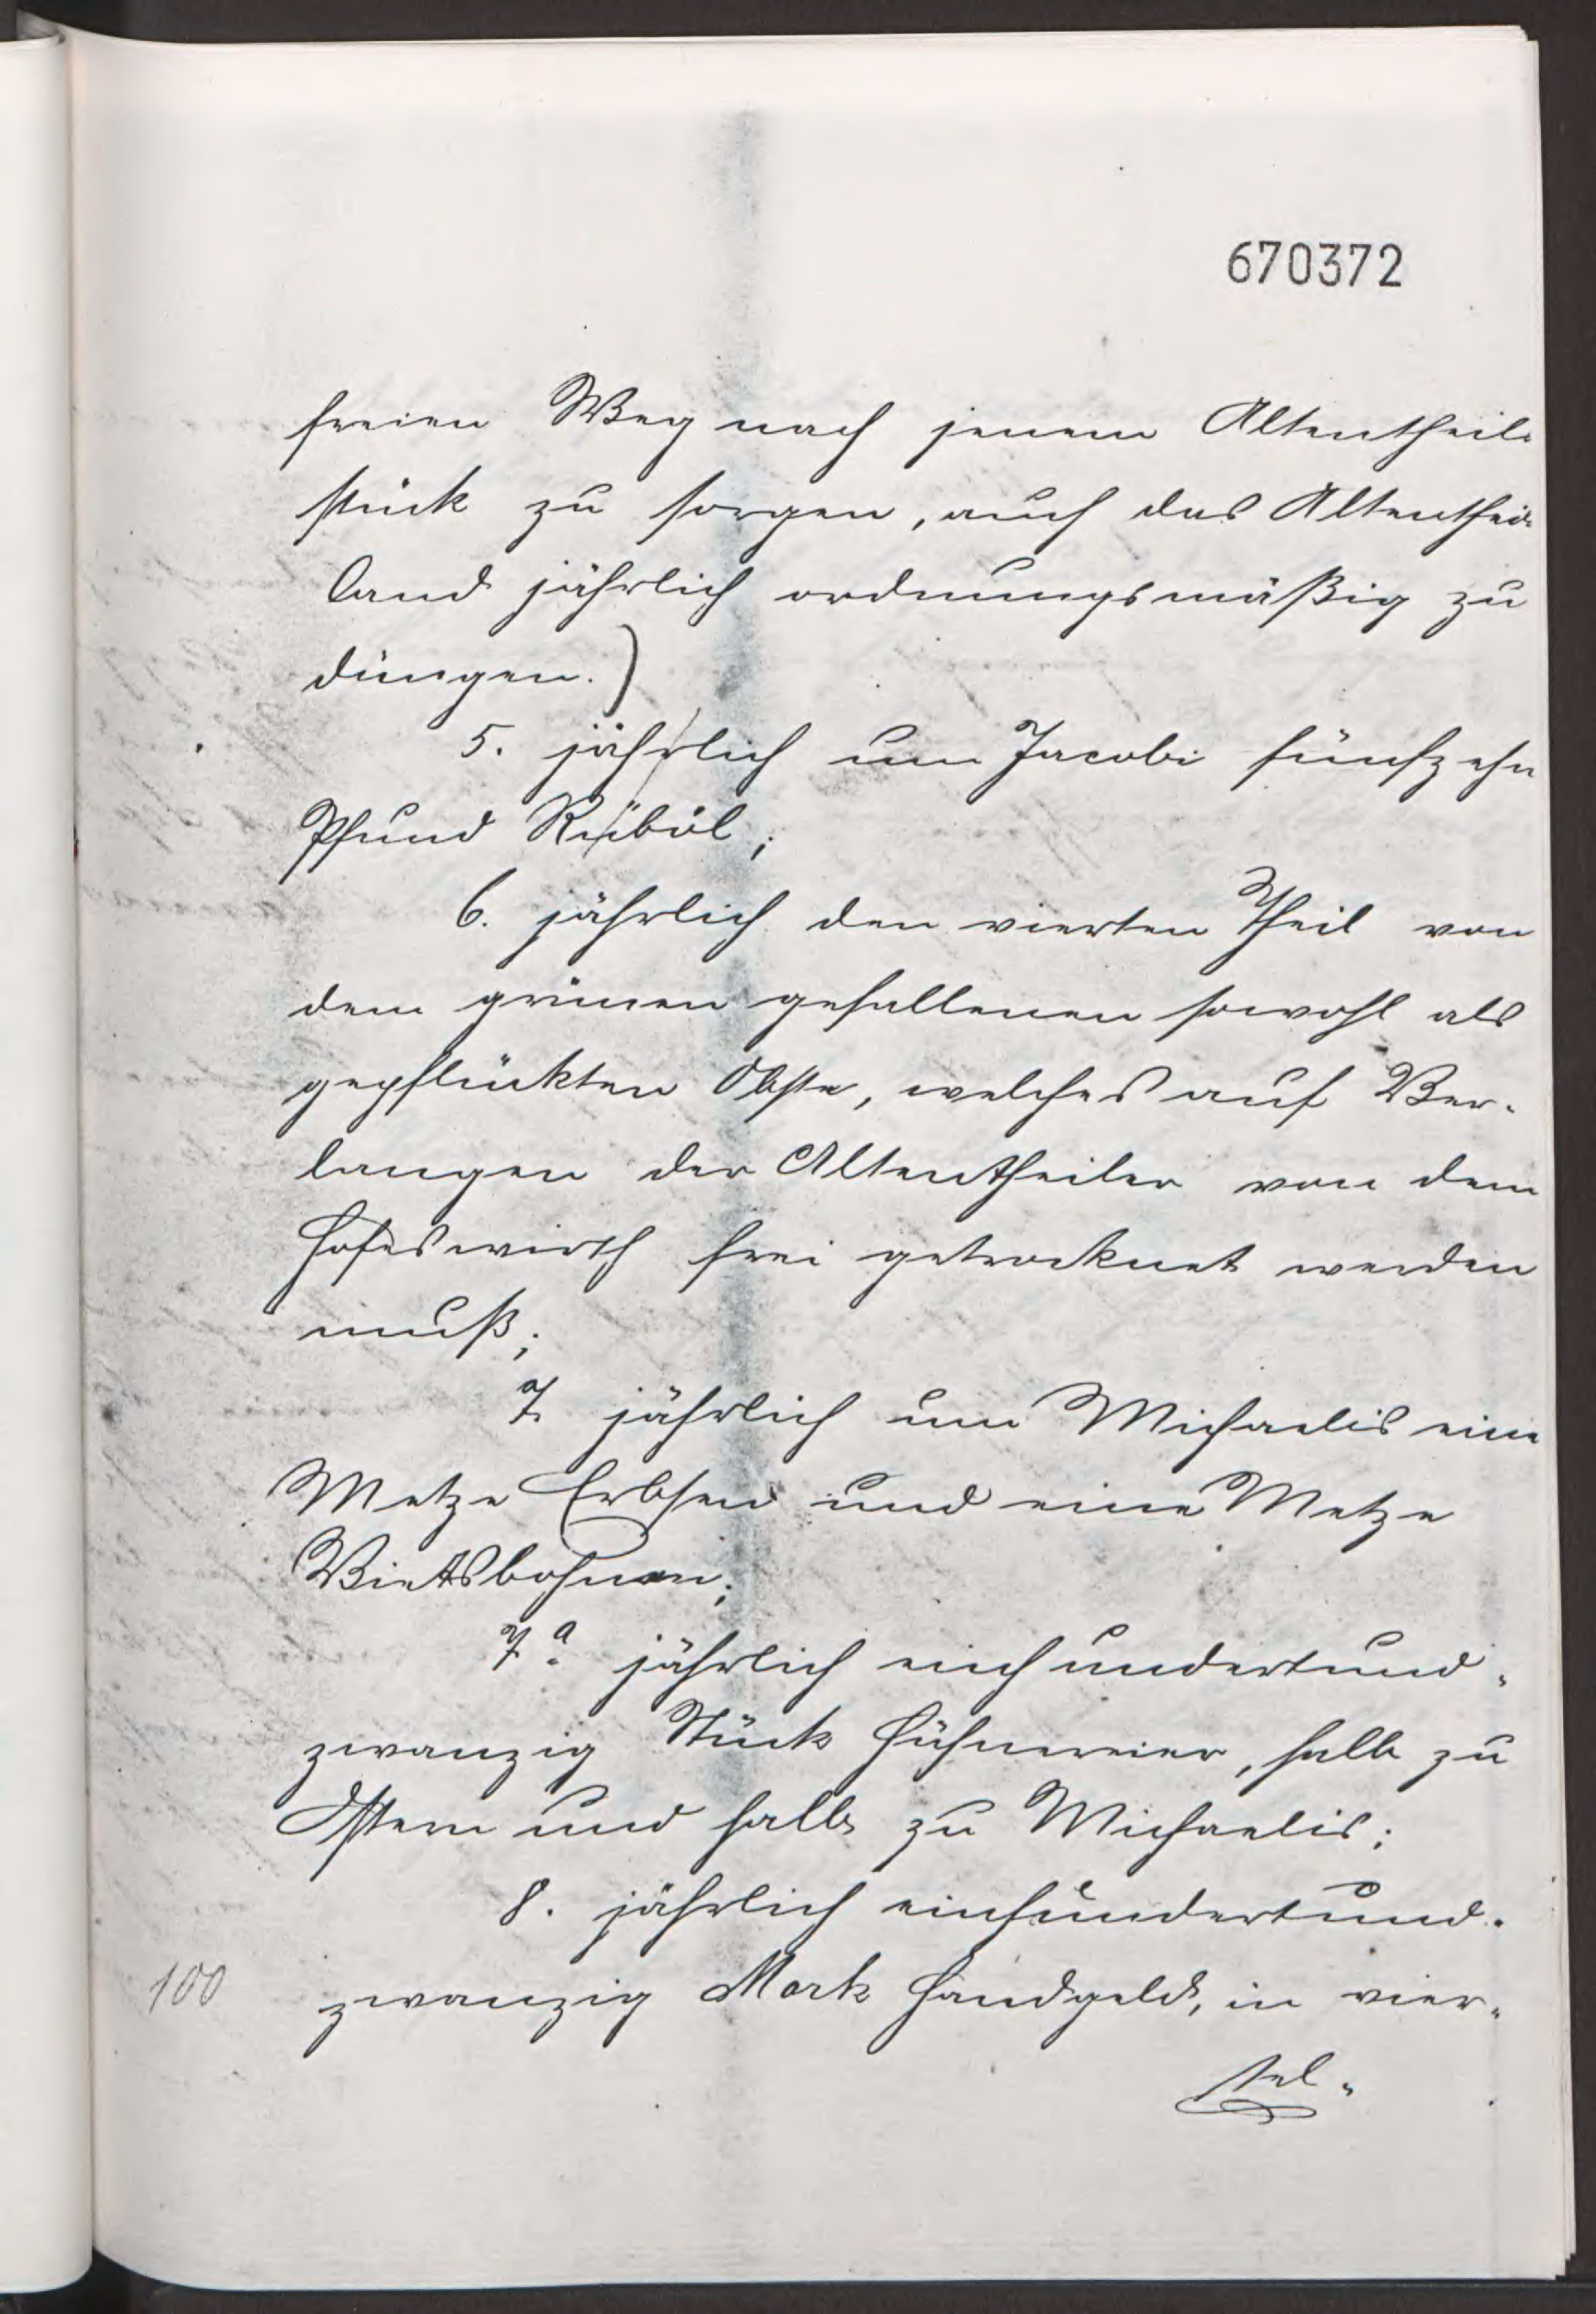 670372
freien Weg nach jenem Altentheils
stück zu sorgen, auch das Altentheils
land jährlich ordnungsmäßig zu
düngen.)
5. jährlich um Jacobi fünfzehn
Pfund Rüböl;
6. jährlich den vierten Theil von
dem grünen gefallenen sowohl als
gepflückten Obste, welches auf Ver-
langen der Altentheiler von dem
Hofeswirth frei getrocknet werden
muß;
7. jährlich um Michaelis eine
Metze Erbsen und eine Metze
Vietsbohnen;
7a. jährlich einhundertund-
zwanzig Stück Hühnereier, halb zu
Ostern und halb zu Michaelis;
8. jährlich einhundertund-
100 zwanzig Mark Handgeld, in vier-
tel-